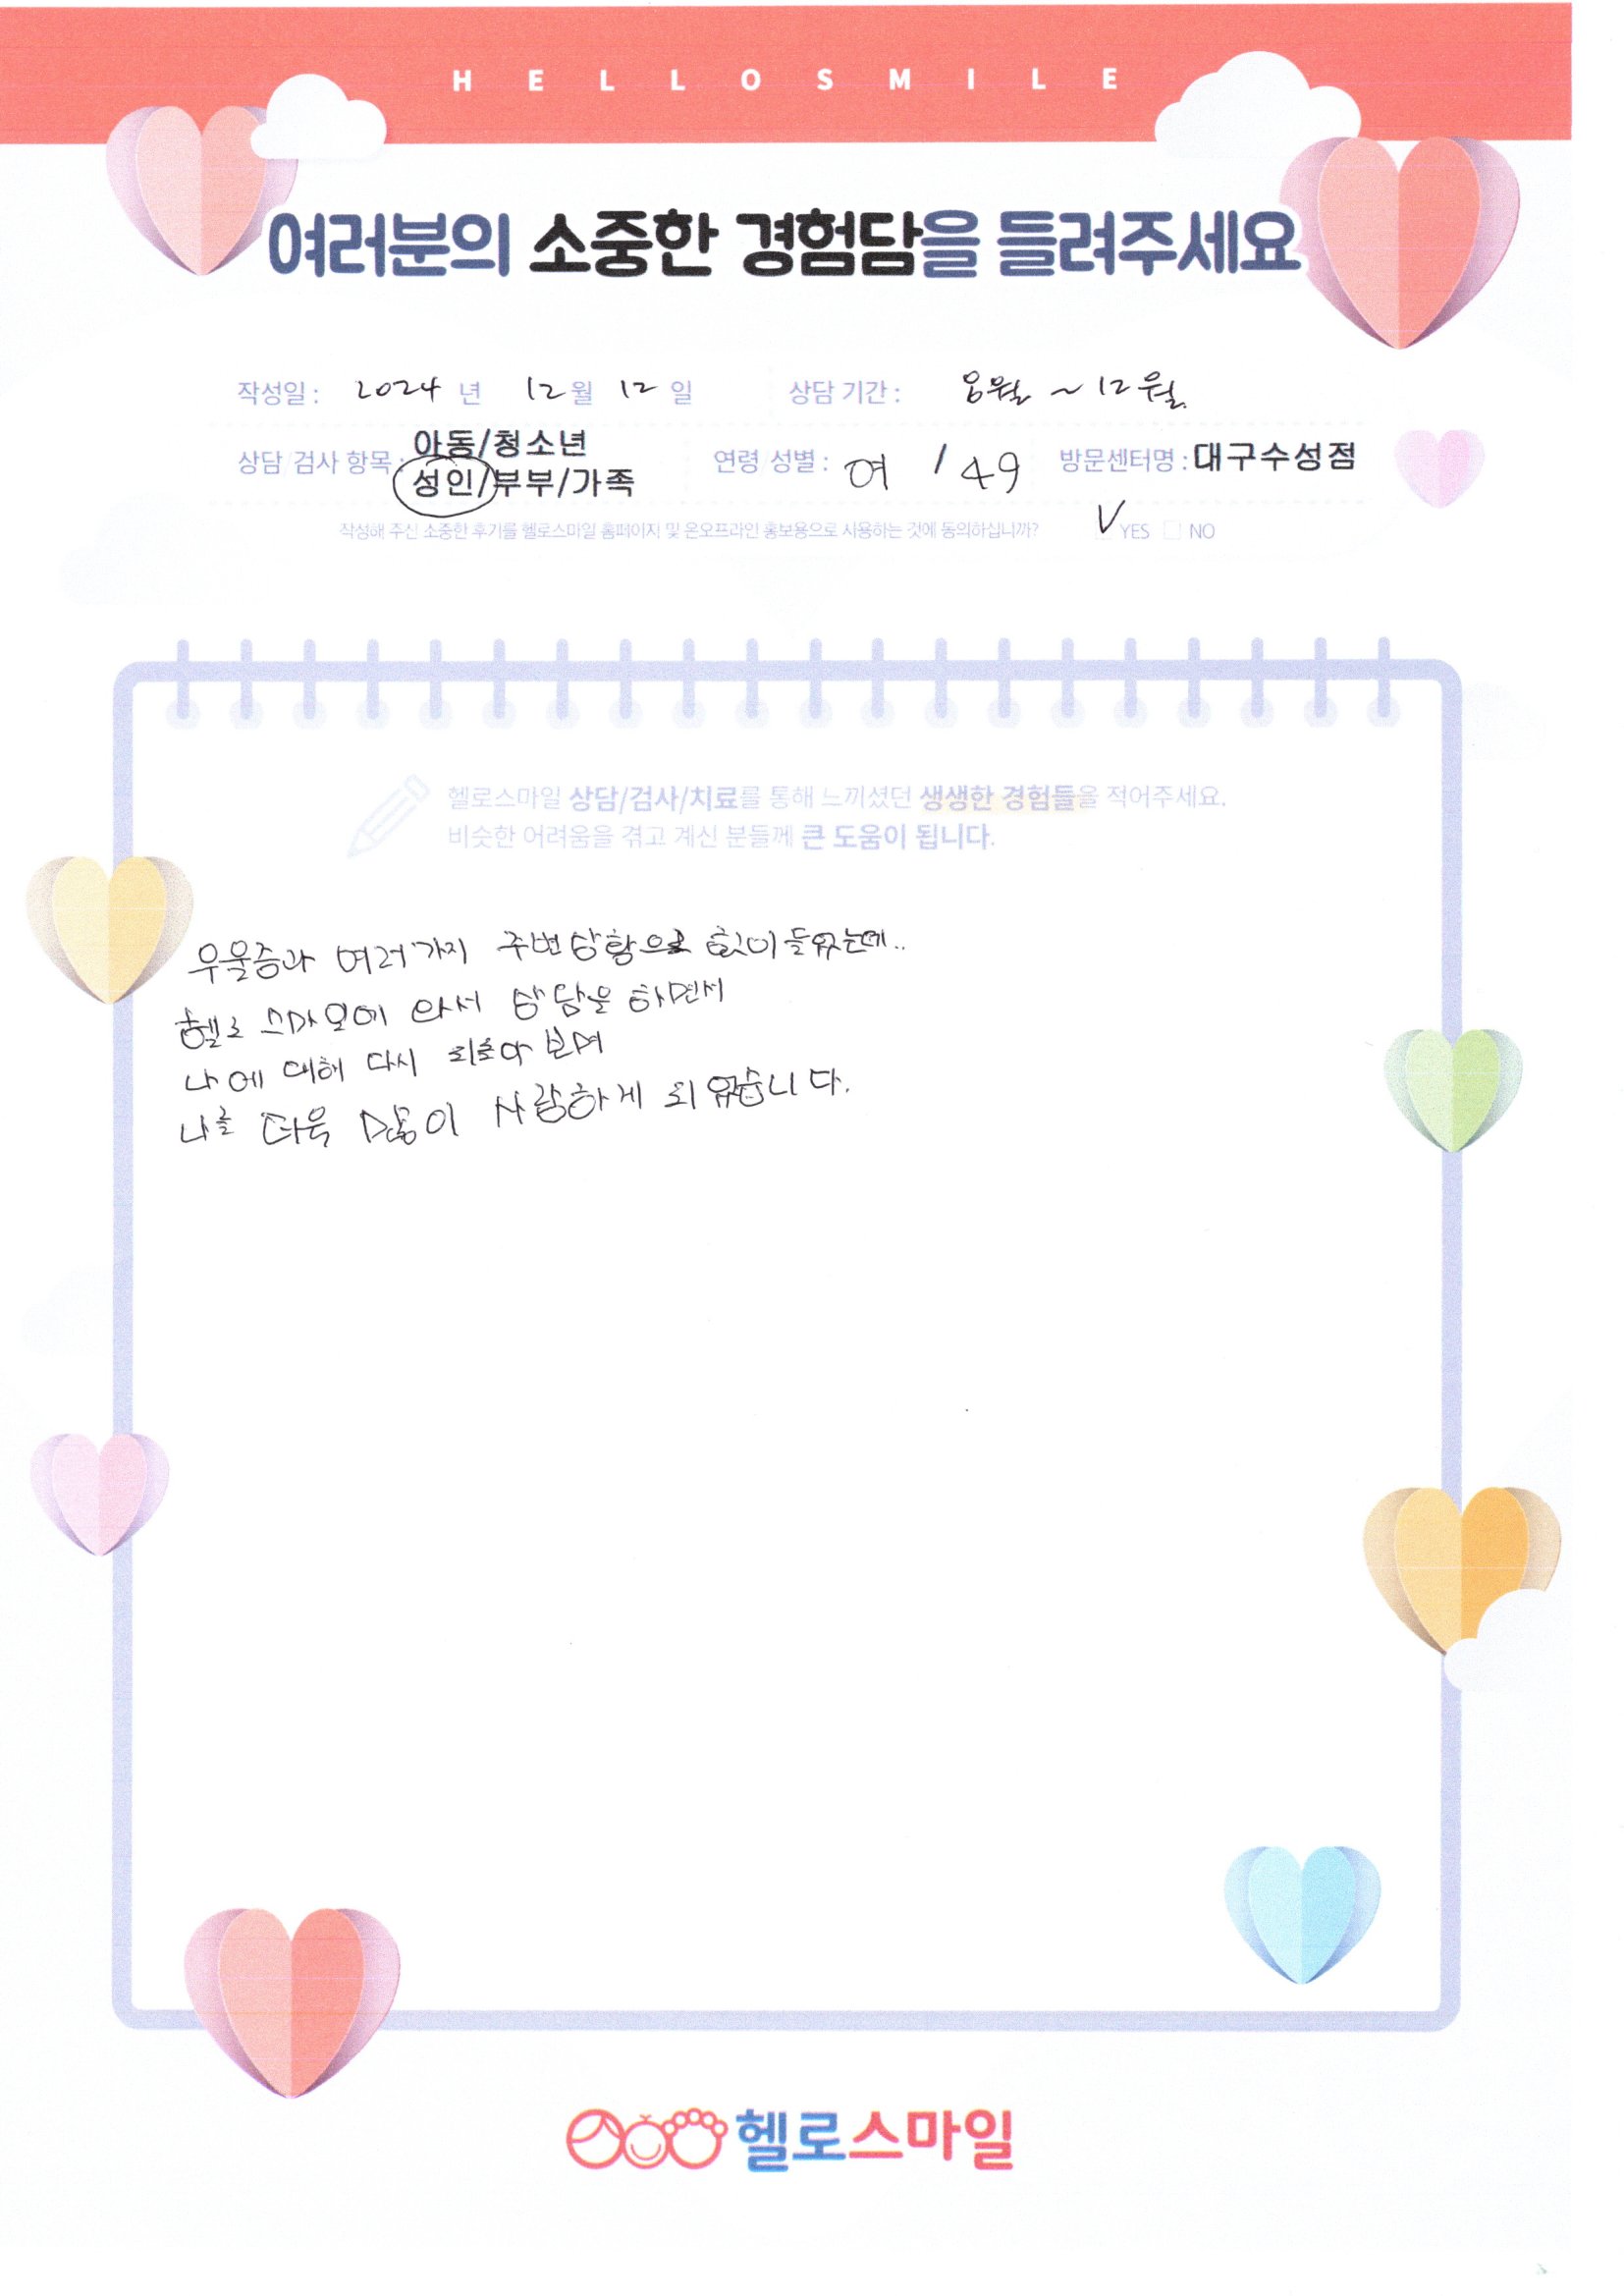 HELLOSMILE
여러분의 소중한 경험담을 들려주세요
작성일 : 2024 년 12 월 12 일 상담 기간 : 8월 ~ 12월.
상담/검사 항목 : 아동/청소년
성인/부부/가족
연령/성별 : 여 / 49 방문센터명 : 대구수성점
작성해 주신 소중한 후기를 헬로스마일 홈페이지 및 온오프라인 홍보용으로 사용하는 것에 동의하십니까? V YES NO
헬로스마일 상담/검사/치료를 통해 느끼셨던 생생한 경험들을 적어주세요.
비슷한 어려움을 겪고 계신 분들께 큰 도움이 됩니다.
우울증과 여러가지 주변상황으로 많이 들었는데..
헬로 스마일에 와서 상담을 하면서
나에 대해 다시 되돌아 보며
나를 더욱 많이 사랑하게 되었습니다.
헬로스마일